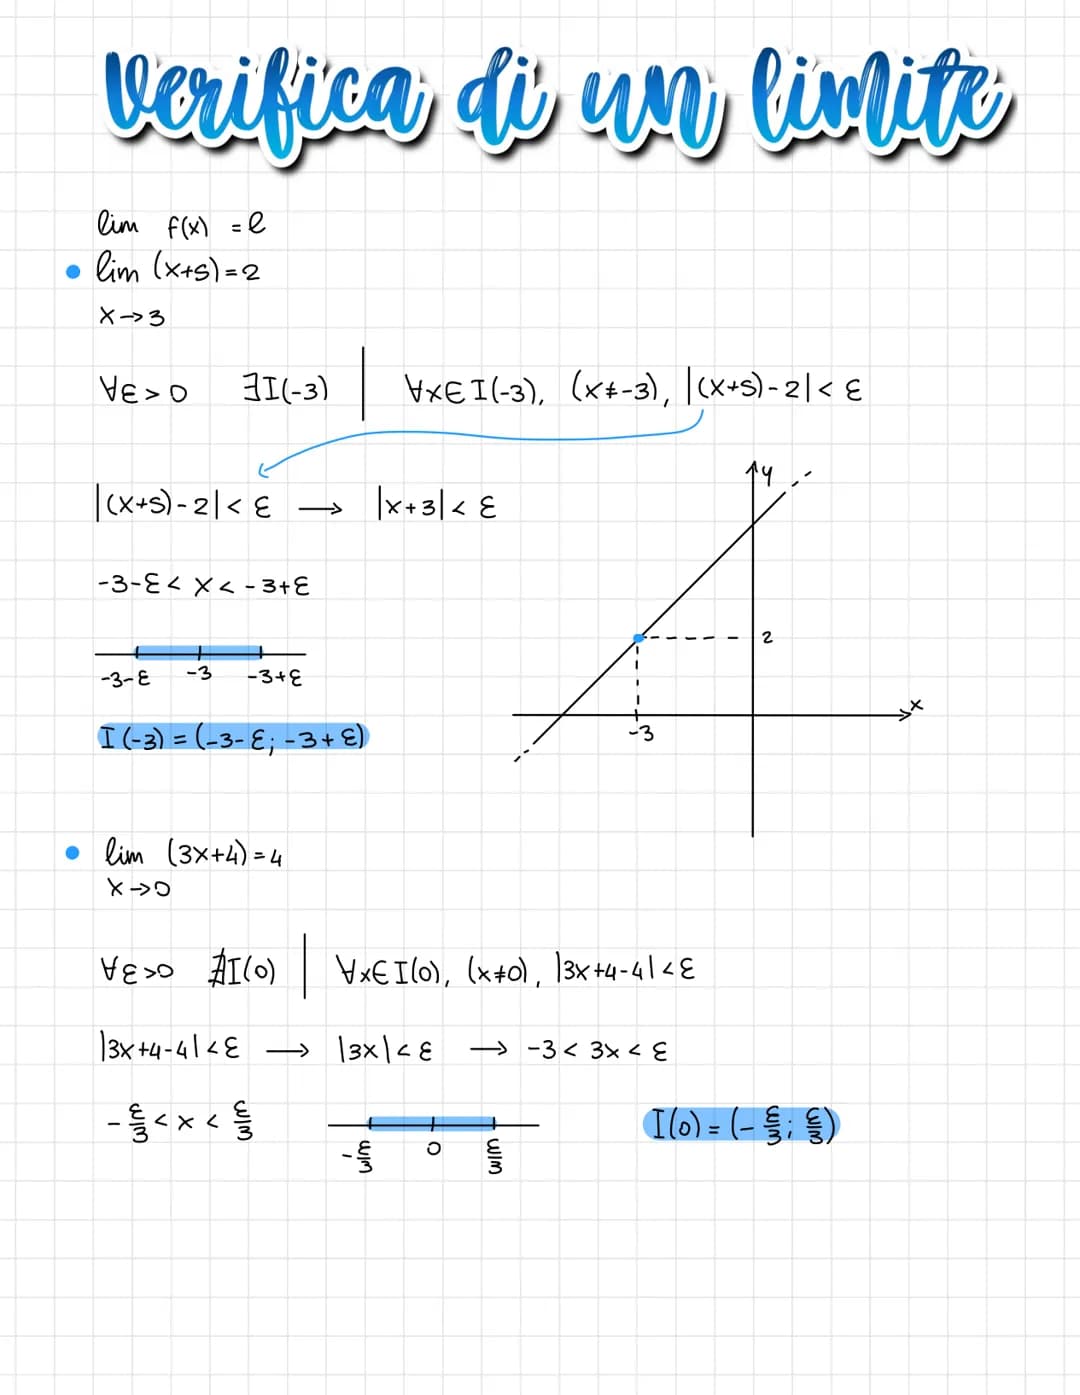 Verifica di un limite
lim f(x) = l
• lim (x+5)=2
x→3
∀ε>0 ∃I(-3) | ∀x∈I(-3), (x≠-3), |(x+5)-2|<ε
|(x+5)-2|<ε → |x+3|<ε
-3-ε<x<-3+ε
-3-ε -3 -3+ε
I(-3)=(-3-ε; -3+ε)
y
2
x
-3
• lim (3x+4)=4
x→0
∀ε>0 ∄I(0) | ∀x∈I(0), (x≠0), |3x+4-4|<ε
|3x+4-4|<ε → |3x|<ε → -3<3x<ε
-ε/3<x<ε/3
-ε/3 0 ε/3
I(0)=(-ε/3; ε/3)